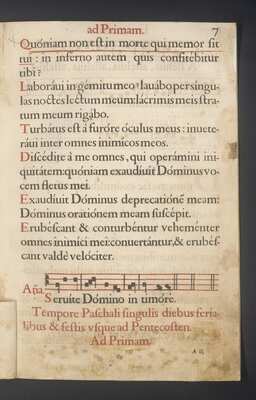 ad Primam. 7
Quóniam non est in morte qui memor sit
tui : in inferno autem quis confitébitur
tibi?
Laborávi in gémitu meo: lauábo per singu-
las noctes lectum meum: lácrimis meis stra-
tum meum rigábo.
Turbátus est á furóre óculus meus : inuete-
ráui inter omnes inimícos meos.
Discédite á me omnes, qui operámini ini-
quitátem: quóniam exaudíuit Dóminus vo-
cem fletus mei.
Exaudíuit Dóminus deprecatiónē meam:
Dóminus oratiónem meam suscépit.
Erubéscant & conturbéntur veheménter
omnes inimíci mei: conuertántur, & erubés-
cant valdè velóciter.
Aña.
Seruite Dómino in timóre.
Tempore Paschali singulis diebus feria-
libus & festis vsque ad Pentecosten.
Ad Primam.